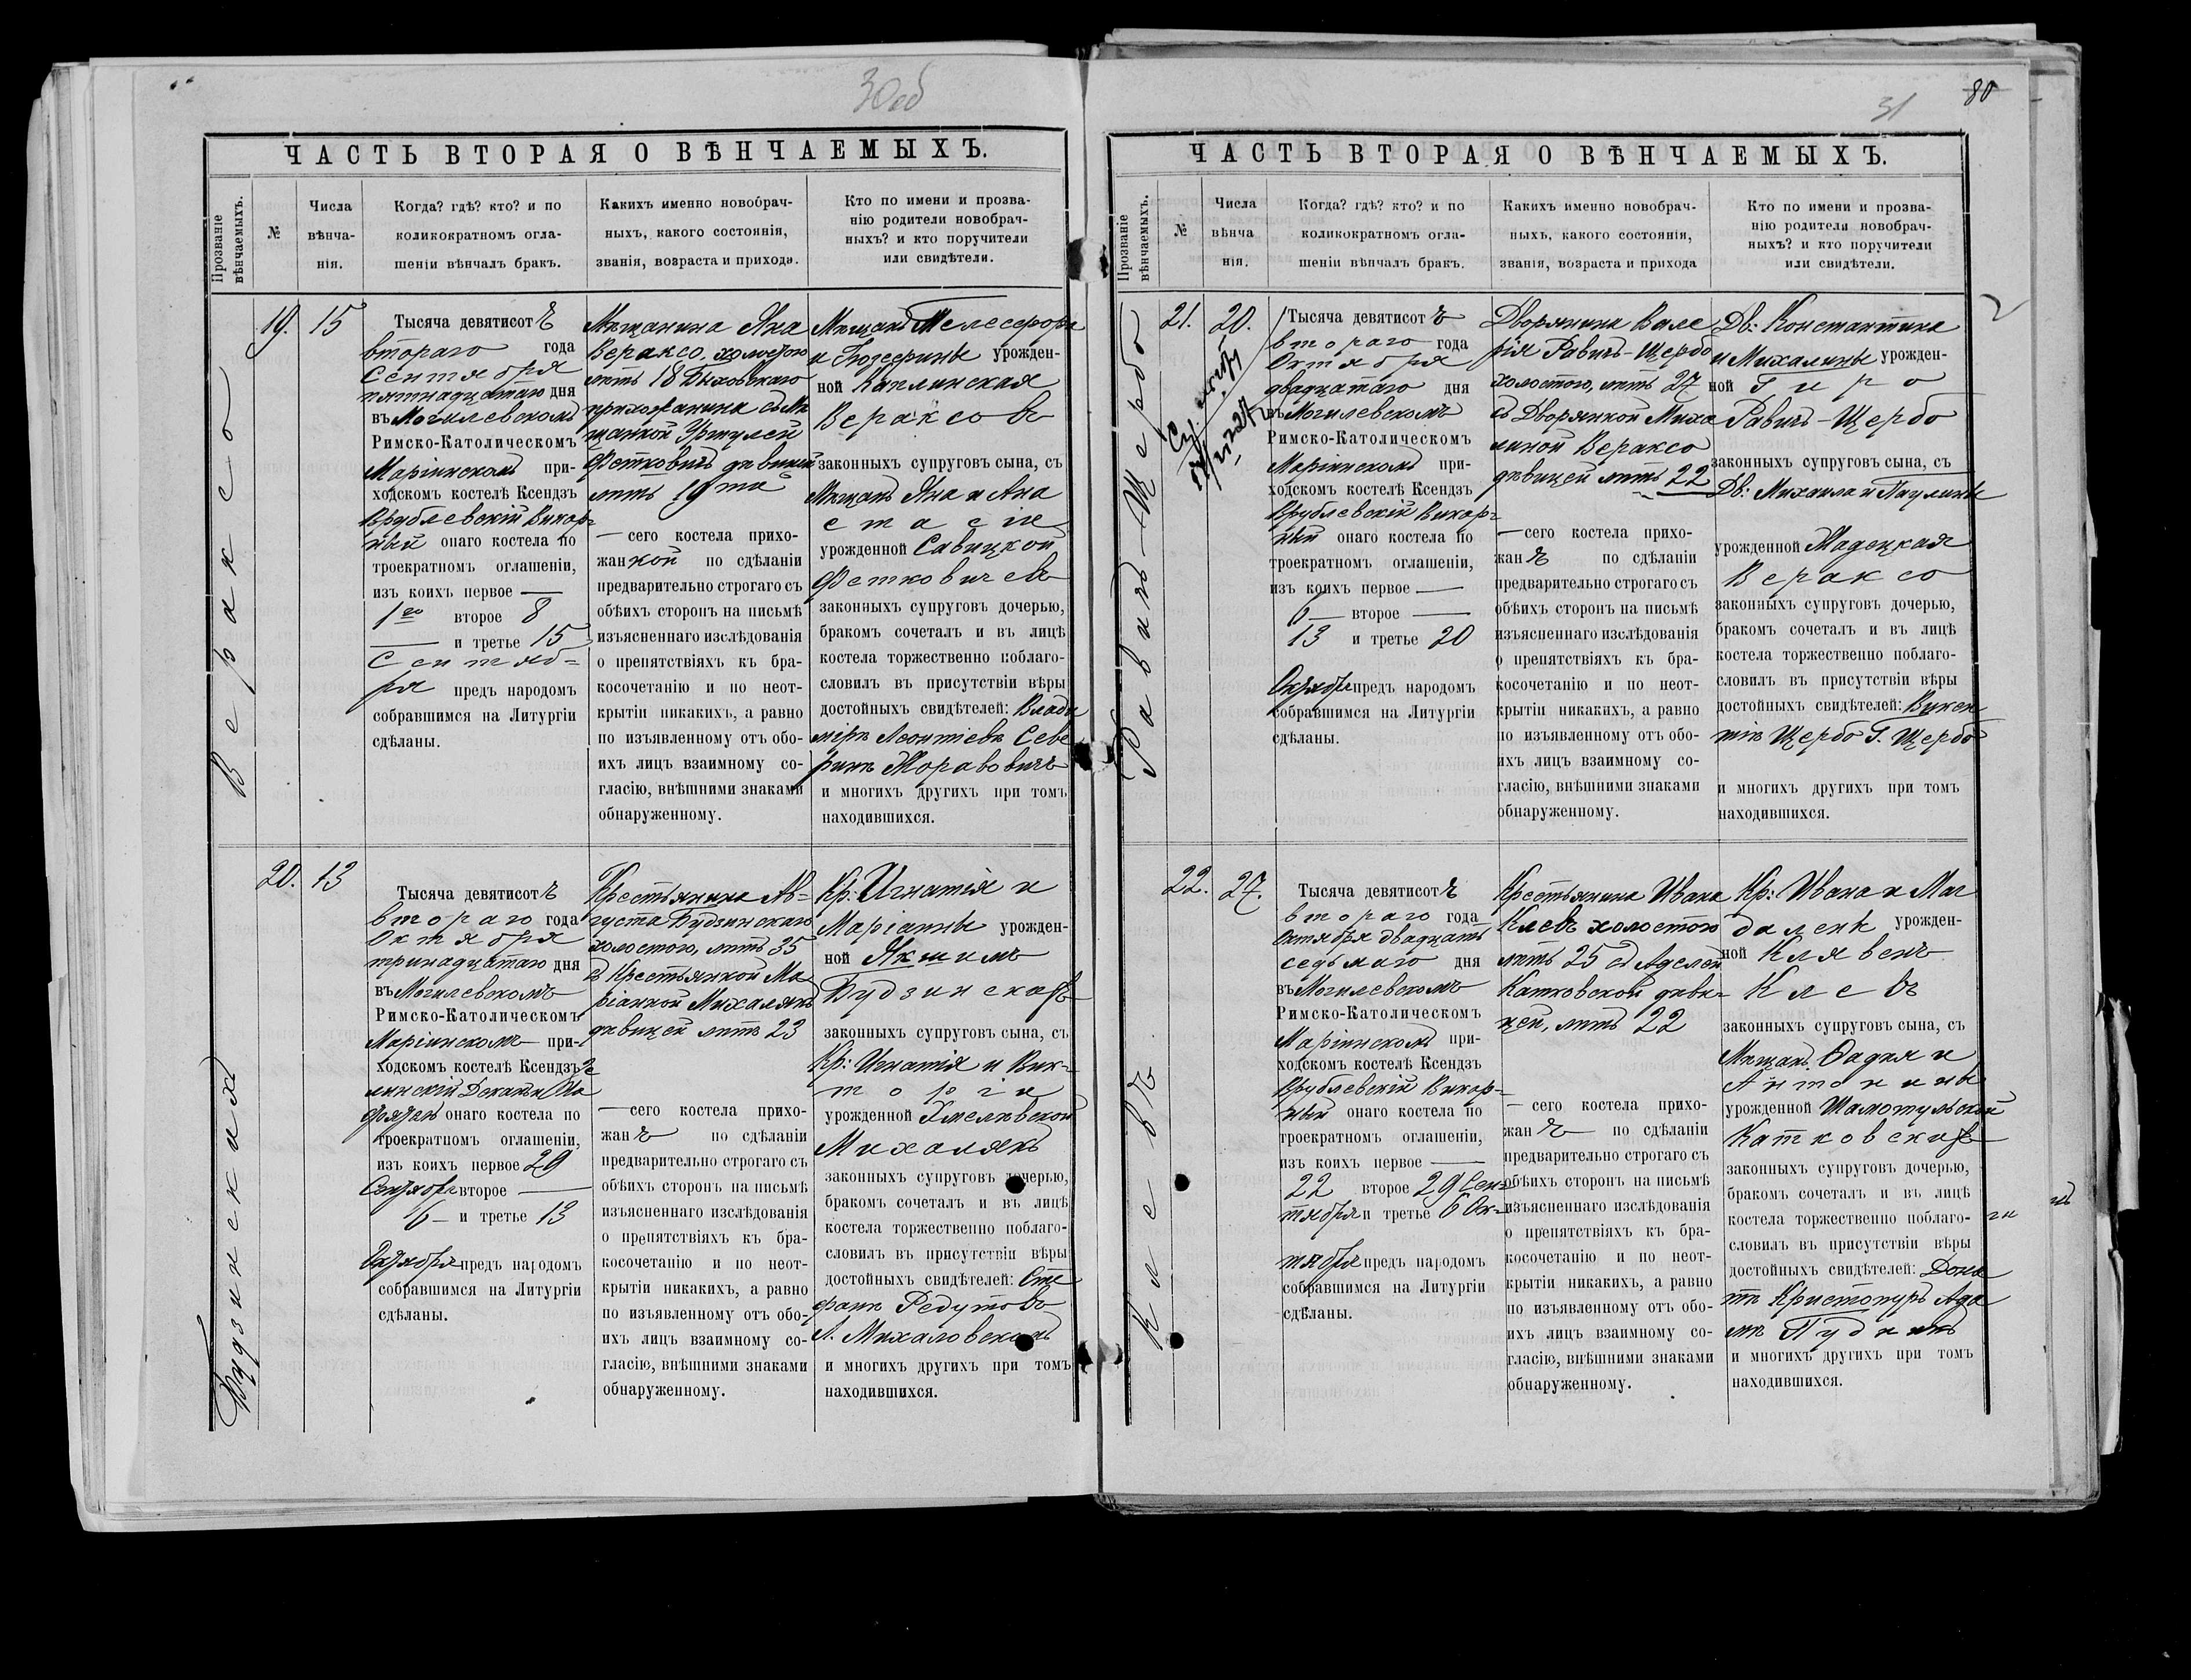 30об
ЧАСТЬ ВТОРАЯ О ВѢНЧАЕМЫХЪ.
Прозваніе вѣнчаемыхъ.
№
Числа
вѣнча-
нія.
Когда? гдѣ? кто? и по
коликократномъ огла-
шеніи вѣнчалъ бракъ.
Какихъ именно новобрач-
ныхъ, какого состоянія,
званія, возраста и прихода.
Кто по имени и прозва-
нію родители новобрач-
ныхъ? и кто поручители
или свидѣтели.
Вераксо
19.
15
Тысяча девятисотъ
втораго года
Сентября
пятнадцатаго дня
въ Могилевскомъ
Римско-Католическомъ
Маріинскомъ при-
ходскомъ костелѣ Ксендзъ
Врублевскій Викар-
ный онаго костела по
троекратномъ оглашеніи,
изъ коихъ первое —
1го второе 8
— и третье 15
Сентяб=
ря предъ народомъ
собравшимся на Литургіи
сдѣланы.
Мѣщанина Яна
Вераксо, холостого
лѣтъ 18 Быховскаго
прихожанина съ Мѣ
щанкой Уршулей
Фетковичъ дѣвицей
лѣтъ 19ти
— сего костела прихо-
жанкой по сдѣланіи
предварительно строгаго съ
обѣихъ сторонъ на письмѣ
изъясненнаго изслѣдованія
о препятствіяхъ къ бра-
косочетанію и по неот-
крытіи никакихъ, а равно
по изъявленному отъ обо-
ихъ лицъ взаимному со-
гласію, внѣшними знаками
обнаруженному.
Мѣщанъ Телесфора
и Іозефины урожден-
ной Каплинская
Вераксовъ
законныхъ супруговъ сына, съ
Мѣщанъ Яна и Ана
стасіи
урожденной Савицкой
Фетковичевъ
законныхъ супруговъ дочерью,
бракомъ сочеталъ и въ лицѣ
костела торжественно поблаго-
словилъ въ присутствіи вѣры
достойныхъ свидѣтелей: Влади
міръ Леонтіевъ Севе
ринъ Жоравовичъ
и многихъ другихъ при томъ
находившихся.
Будзинскихъ
20.
13
Тысяча девятисотъ
втораго года
Октября
тринадцатаго дня
въ Могилевскомъ
Римско-Католическомъ
Маріинскомъ при-
ходскомъ костелѣ Ксендзъ
онаго костела по
троекратномъ оглашеніи,
изъ коихъ первое 29
Сентября второе —
6 — и третье 13
Октября предъ народомъ
собравшимся на Литургіи
сдѣланы.
Крестьянина Ав=
густа Будзинскаго
холостого, лѣтъ 35
съ Крестьянкой Ма
ріанной Михалякъ
дѣвицей лѣтъ 23
— сего костела прихо-
жанъ по сдѣланіи
предварительно строгаго съ
обѣихъ сторонъ на письмѣ
изъясненнаго изслѣдованія
о препятствіяхъ къ бра-
косочетанію и по неот-
крытіи никакихъ, а равно
по изъявленному отъ обо-
ихъ лицъ взаимному со-
гласію, внѣшними знаками
обнаруженному.
Кр: Игнатія и
Маріанны урожден-
ной Якшимъ
Будзинскихъ
законныхъ супруговъ сына, съ
Кр: Игнатія и Вик=
торіи
урожденной Хмелевской
Михалякъ
законныхъ супруговъ дочерью,
бракомъ сочеталъ и въ лицѣ
костела торжественно поблаго-
словилъ въ присутствіи вѣры
достойныхъ свидѣтелей: Сте
фанъ Редутовъ
А. Михаловскій
и многихъ другихъ при томъ
находившихся.
80
31
ЧАСТЬ ВТОРАЯ О ВѢНЧАЕМЫХЪ.
Прозваніе вѣнчаемыхъ.
№
Числа
вѣнча
нія.
Когда? гдѣ? кто? и по
коликократномъ огла-
шеніи вѣнчалъ бракъ.
Какихъ именно новобрач-
ныхъ, какого состоянія,
званія, возраста и прихода
Кто по имени и прозва-
нію родители новобрач-
ныхъ? и кто поручители
или свидѣтели.
Равичъ-Щербо
21.
20.
Тысяча девятисотъ
втораго года
Октября
двадцатаго дня
въ Могилевскомъ
Римско-Католическомъ
Маріинскомъ при-
ходскомъ костелѣ Ксендзъ
Врублевскій Викар=
ный онаго костела по
троекратномъ оглашеніи,
изъ коихъ первое —
6 — второе —
13 и третье 20
Октября предъ народомъ
собравшимся на Литургіи
сдѣланы.
Дворянина Вале
рія Равичъ-Щербо
холостого, лѣтъ 27
съ Дворянкой Миха
линой Вераксо
дѣвицей лѣтъ 22
— сего костела прихо-
жанъ по сдѣланіи
предварительно строгаго съ
обѣихъ сторонъ на письмѣ
изъясненнаго изслѣдованія
о препятствіяхъ къ бра-
косочетанію и по неот-
крытіи никакихъ, а равно
по изъявленному отъ обо-
ихъ лицъ взаимному со-
гласію, внѣшними знаками
обнаруженному.
Дв: Константина
и Михалины урожден-
ной Гиро
Равичъ-Щербо
законныхъ супруговъ сына, съ
Дв: Михаила и Паулины
урожденной Мадецкая
Вераксо
законныхъ супруговъ дочерью,
бракомъ сочеталъ и въ лицѣ
костела торжественно поблаго-
словилъ въ присутствіи вѣры
достойныхъ свидѣтелей: Викен
тій Щербо Г. Щербо
и многихъ другихъ при томъ
находившихся.
Клевъ
22.
27.
Тысяча девятисотъ
втораго года
Октября двадцать
седьмаго дня
въ Могилевскомъ
Римско-Католическомъ
Маріинскомъ при-
ходскомъ костелѣ Ксендзъ
Врублевскій Викар=
ный онаго костела по
троекратномъ оглашеніи,
изъ коихъ первое —
22 второе 29 Сен=
тября и третье 6 Ок=
тября предъ народомъ
собравшимся на Литургіи
сдѣланы.
Крестьянина Ивана
Клевъ холостого
лѣтъ 25 съ Аделей
Катковской дѣви=
цей, лѣтъ 22
— сего костела прихо-
жанъ — по сдѣланіи
предварительно строгаго съ
обѣихъ сторонъ на письмѣ
изъясненнаго изслѣдованія
о препятствіяхъ къ бра-
косочетанію и по неот-
крытіи никакихъ, а равно
по изъявленному отъ обо-
ихъ лицъ взаимному со-
гласію, внѣшними знаками
обнаруженному.
Кр: Ивана и Маг
далены урожден-
ной Клявенъ
Клевъ
законныхъ супруговъ сына, съ
Мѣщанъ Фадея и
Антонины
урожденной Шамотульской
Катковскихъ
законныхъ супруговъ дочерью,
бракомъ сочеталъ и въ лицѣ
костела торжественно поблаго-
словилъ въ присутствіи вѣры
достойныхъ свидѣтелей: Дона
тъ Кристопуръ Ада
мъ Пудинъ
и многихъ другихъ при томъ
находившихся.